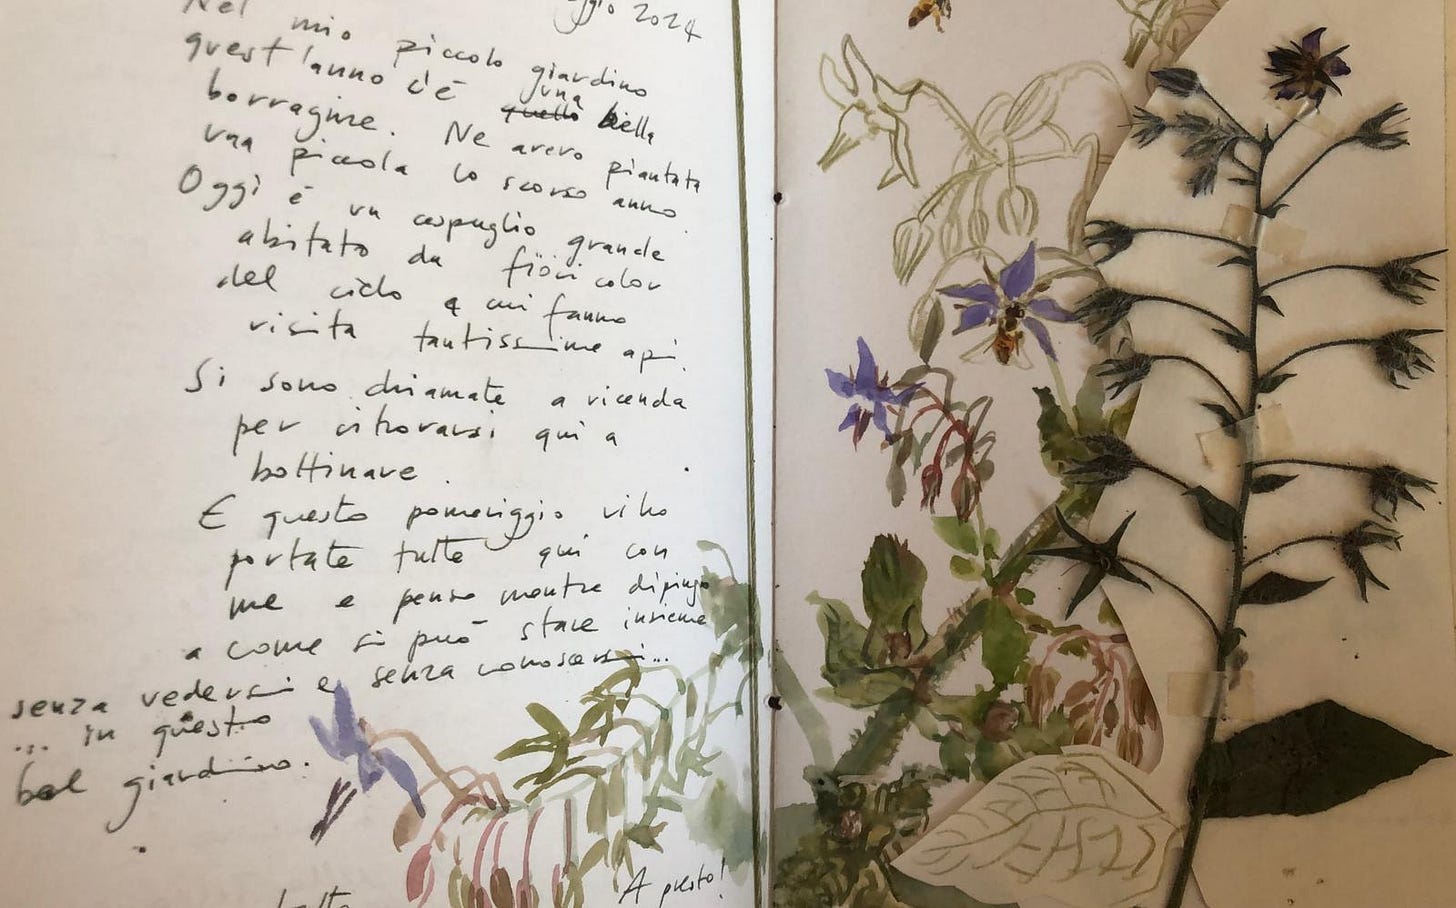 ggio 2024
Nel mio piccolo giardino
quest'anno c'è quello una bella
borragine. Ne avevo piantata
una piccola lo scorso anno.
Oggi è un cespuglio grande
abitato da fiori color
del cielo a cui fanno
visita tantissime api.
Si sono chiamate a vicenda
per ritrovarsi qui a
bottinare.
E questo pomeriggio vi ho
portate tutte qui con
me e penso mentre dipingo
a come si può stare insieme
senza vedersi e senza conoscersi...
... in questo
bel giardino.
A presto!